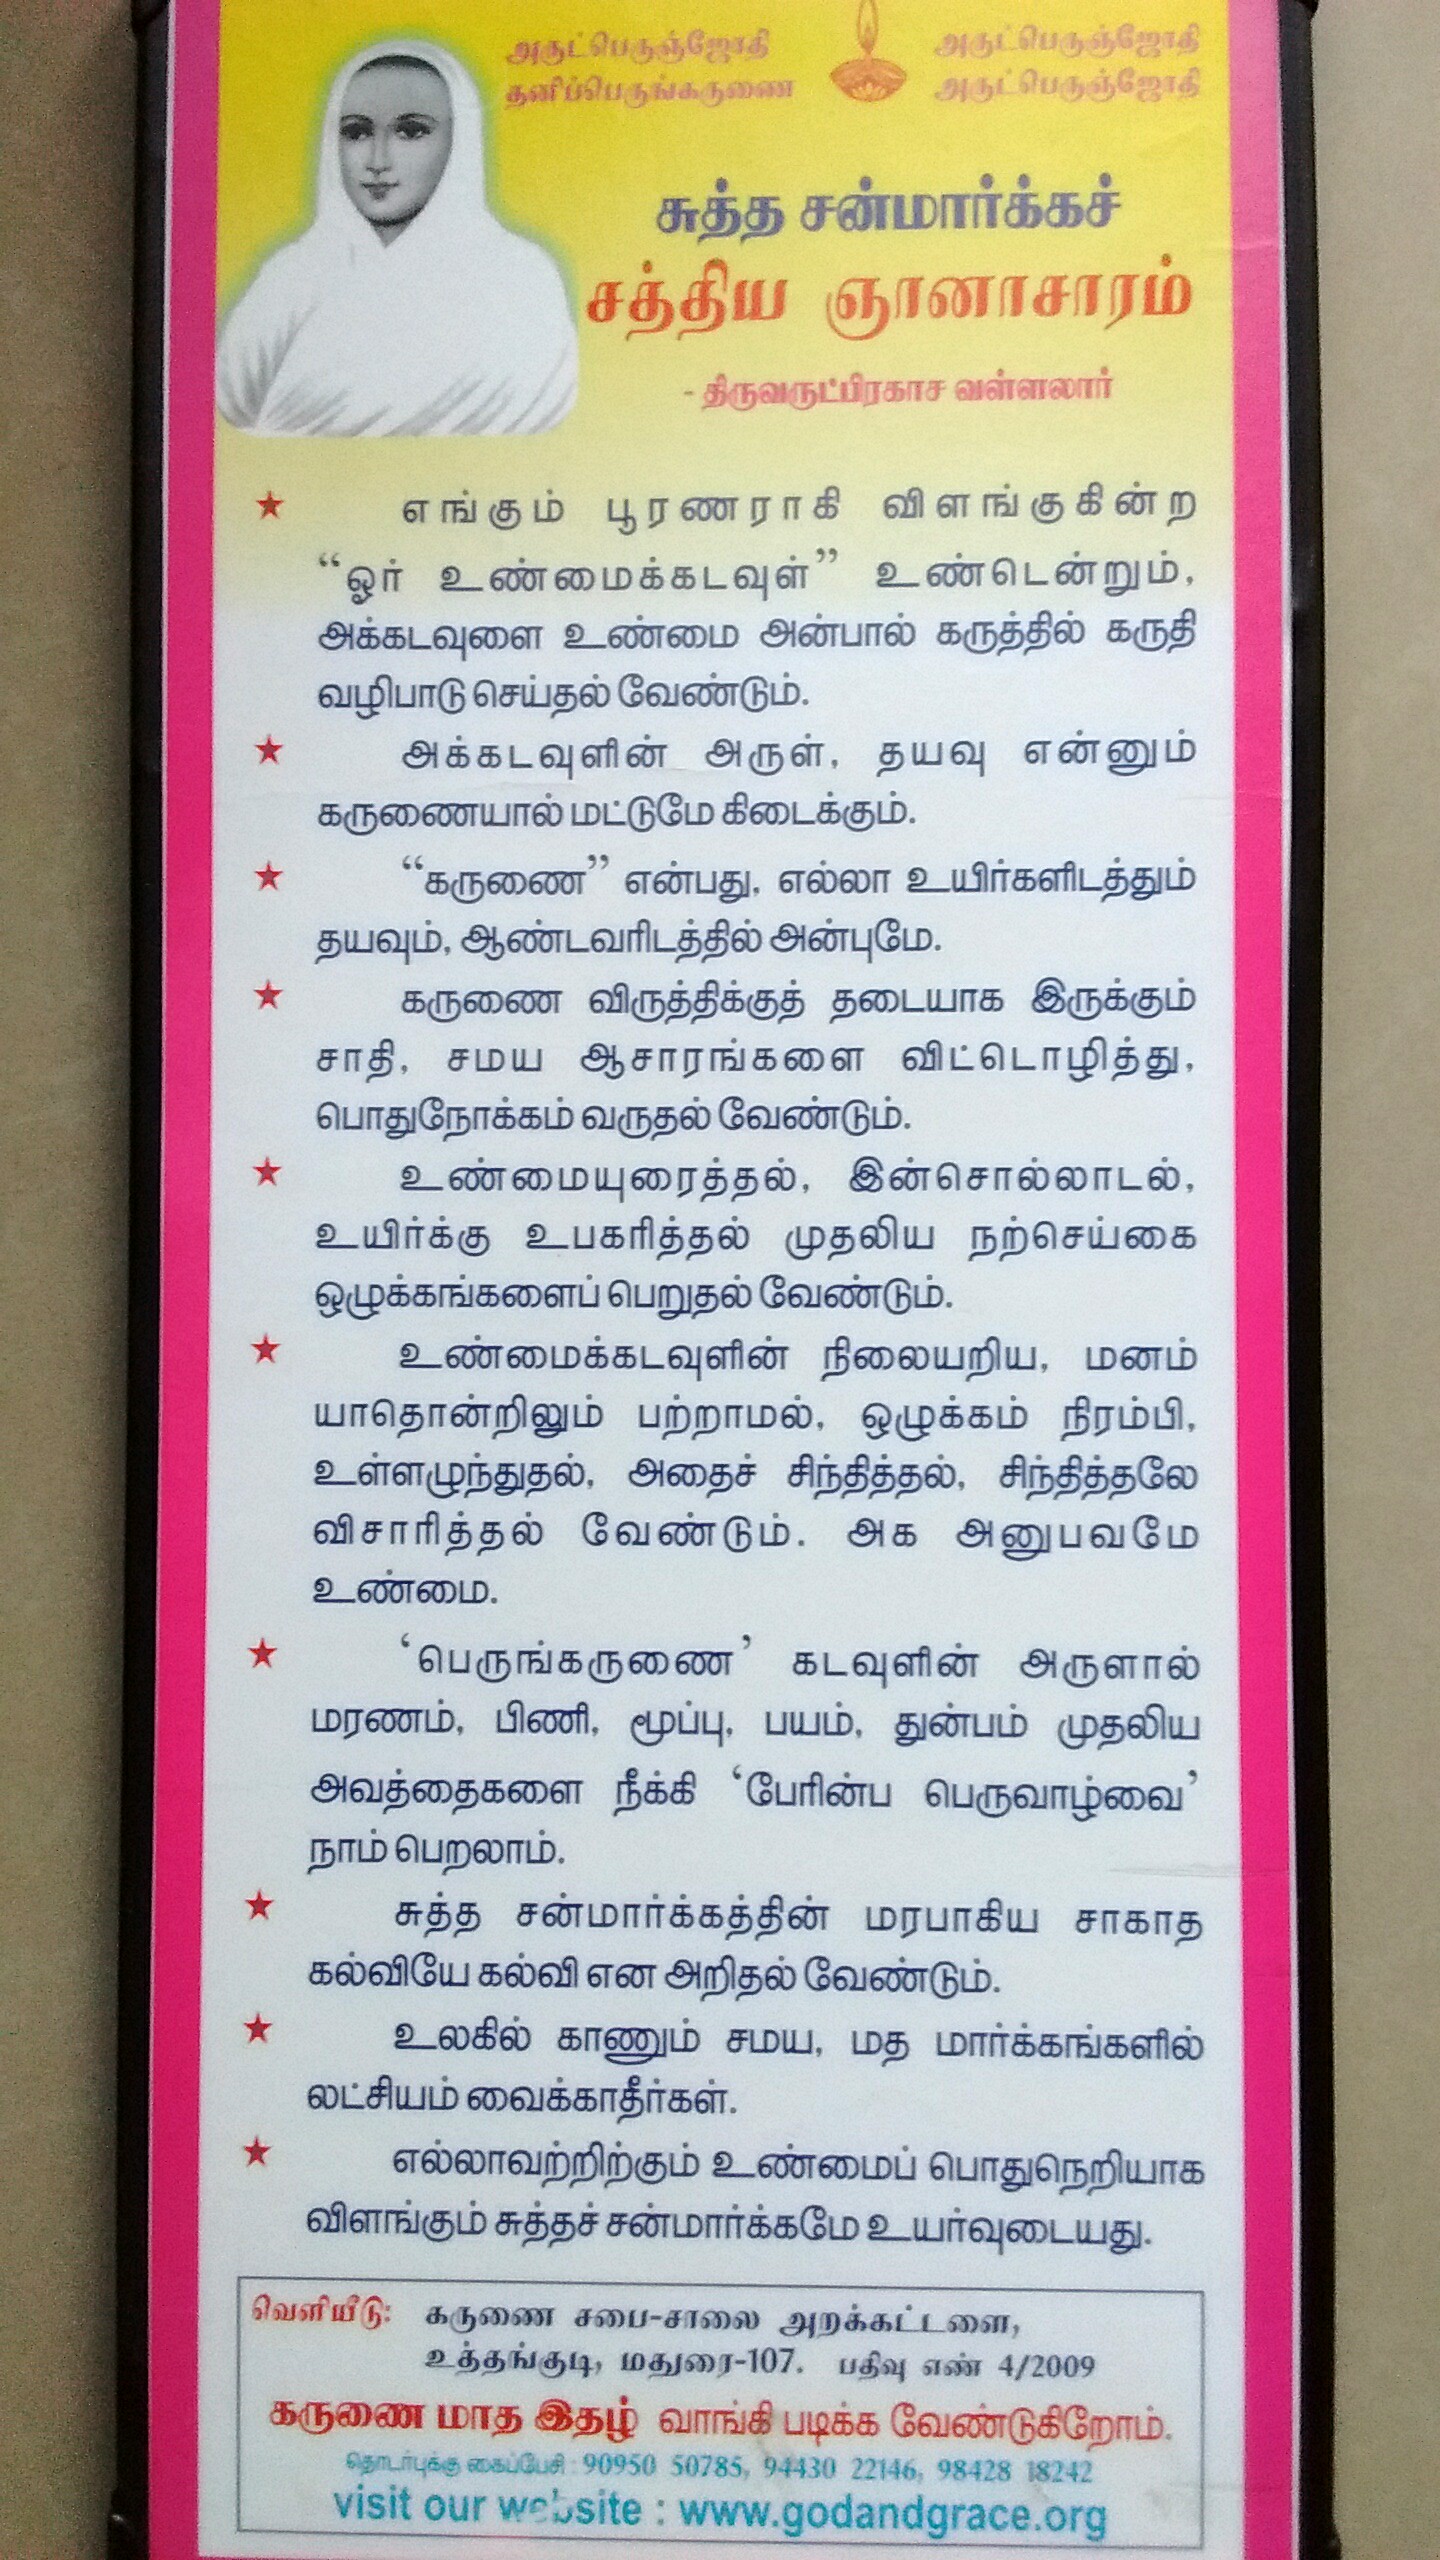 அருட்பெருஞ்ஜோதி அருட்பெருஞ்ஜோதி
தனிப்பெருங்கருணை அருட்பெருஞ்ஜோதி
சுத்த சன்மார்க்கச்
சத்திய ஞானாசாரம்
- திருவருட்பிரகாச வள்ளலார்
★ எங்கும் பூரணராகி விளங்குகின்ற
“ஓர் உண்மைக்கடவுள்” உண்டென்றும்,
அக்கடவுளை உண்மை அன்பால் கருத்தில் கருதி
வழிபாடு செய்தல் வேண்டும்.
★ அக்கடவுளின் அருள், தயவு என்னும்
கருணையால் மட்டுமே கிடைக்கும்.
★ “கருணை” என்பது, எல்லா உயிர்களிடத்தும்
தயவும், ஆண்டவரிடத்தில் அன்புமே.
★ கருணை விருத்திக்குத் தடையாக இருக்கும்
சாதி, சமய ஆசாரங்களை விட்டொழித்து,
பொதுநோக்கம் வருதல் வேண்டும்.
★ உண்மையுரைத்தல், இன்சொல்லாடல்,
உயிர்க்கு உபகரித்தல் முதலிய நற்செய்கை
ஒழுக்கங்களைப் பெறுதல் வேண்டும்.
★ உண்மைக்கடவுளின் நிலையறிய, மனம்
யாதொன்றிலும் பற்றாமல், ஒழுக்கம் நிரம்பி,
உள்ளழுந்துதல், அதைச் சிந்தித்தல், சிந்தித்தலே
விசாரித்தல் வேண்டும். அக அனுபவமே
உண்மை.
★ ‘பெருங்கருணை’ கடவுளின் அருளால்
மரணம், பிணி, மூப்பு, பயம், துன்பம் முதலிய
அவத்தைகளை நீக்கி ‘பேரின்ப பெருவாழ்வை’
நாம் பெறலாம்.
★ சுத்த சன்மார்க்கத்தின் மரபாகிய சாகாத
கல்வியே கல்வி என அறிதல் வேண்டும்.
★ உலகில் காணும் சமய, மத மார்க்கங்களில்
லட்சியம் வைக்காதீர்கள்.
★ எல்லாவற்றிற்கும் உண்மைப் பொதுநெறியாக
விளங்கும் சுத்தச் சன்மார்க்கமே உயர்வுடையது.
வெளியீடு: கருணை சபை-சாலை அறக்கட்டளை,
உத்தங்குடி, மதுரை-107. பதிவு எண் 4/2009
கருணை மாத இதழ் வாங்கி படிக்க வேண்டுகிறோம்.
தொடர்புக்கு கைப்பேசி : 90950 50785, 94430 22146, 98428 18242
visit our website : www.godandgrace.org